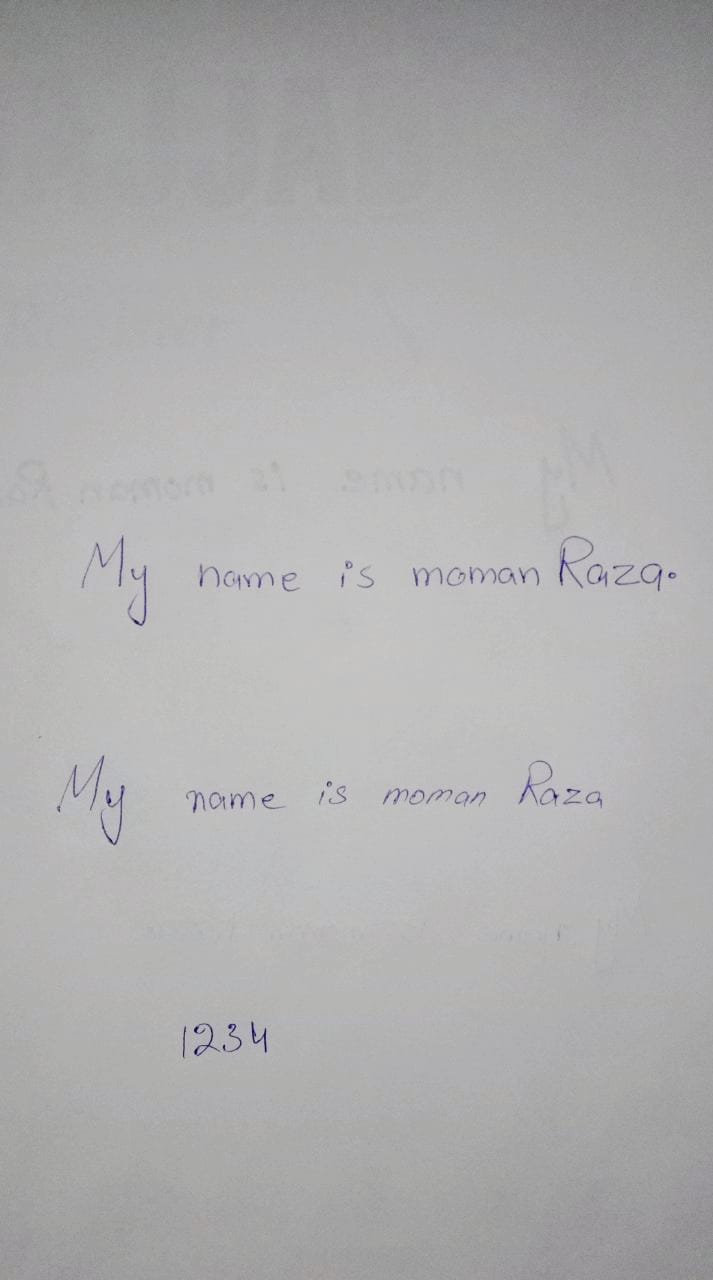 My name is moman Raza.
My name is moman Raza
1234